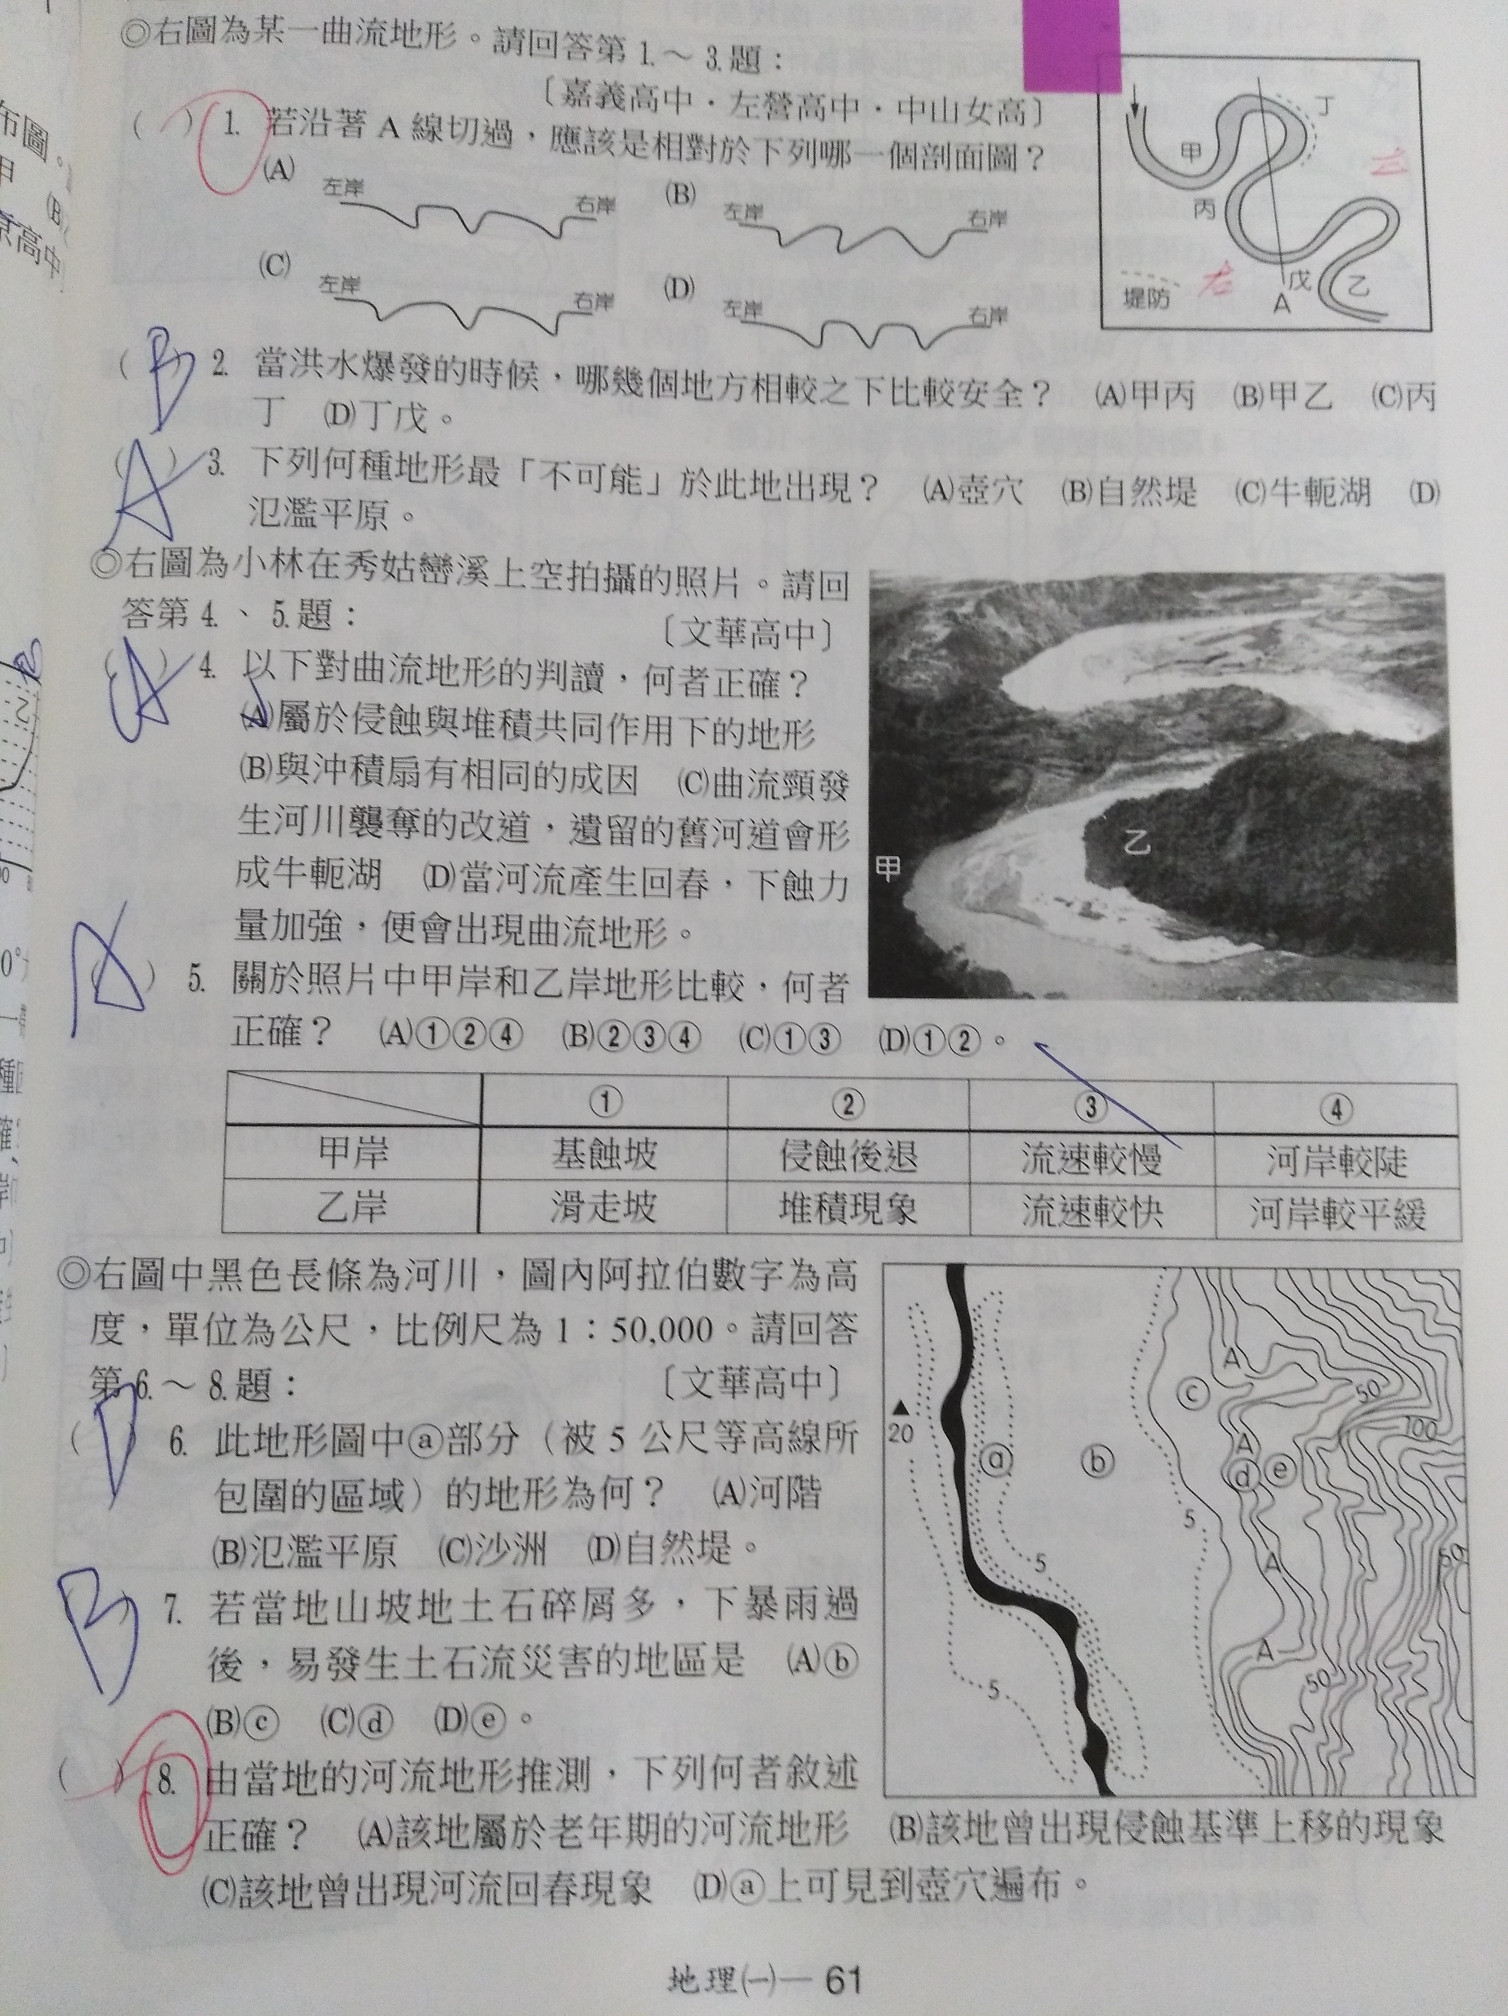 ◎右圖為某一曲流地形。請回答第1.～3.題：
〔嘉義高中．左營高中．中山女高〕
( ) 1. 若沿著A線切過，應該是相對於下列哪一個剖面圖？
(A) 左岸 右岸 (B) 左岸 右岸
(C) 左岸 右岸 (D) 左岸 右岸
甲
丙
丁
右
戊
乙
A
堤防
( B ) 2. 當洪水爆發的時候，哪幾個地方相較之下比較安全？ (A)甲丙 (B)甲乙 (C)丙
丁 (D)丁戊。
( A ) 3. 下列何種地形最「不可能」於此地出現？ (A)壺穴 (B)自然堤 (C)牛軛湖 (D)
氾濫平原。
◎右圖為小林在秀姑巒溪上空拍攝的照片。請回
答第4.、5.題： 〔文華高中〕
( A ) 4. 以下對曲流地形的判讀，何者正確？
(A)屬於侵蝕與堆積共同作用下的地形
(B)與沖積扇有相同的成因 (C)曲流頸發
生河川襲奪的改道，遺留的舊河道會形
成牛軛湖 (D)當河流產生回春，下蝕力
量加強，便會出現曲流地形。
甲
乙
( A ) 5. 關於照片中甲岸和乙岸地形比較，何者
正確？ (A)①②④ (B)②③④ (C)①③ (D)①②。
① ② ③ ④
甲岸 基蝕坡 侵蝕後退 流速較慢 河岸較陡
乙岸 滑走坡 堆積現象 流速較快 河岸較平緩
◎右圖中黑色長條為河川，圖內阿拉伯數字為高
度，單位為公尺，比例尺為1：50,000。請回答
第6.～8.題： 〔文華高中〕
( D ) 6. 此地形圖中ⓐ部分（被5公尺等高線所
包圍的區域）的地形為何？ (A)河階
(B)氾濫平原 (C)沙洲 (D)自然堤。
( B ) 7. 若當地山坡地土石碎屑多，下暴雨過
後，易發生土石流災害的地區是 (A)ⓑ
(B)ⓒ (C)ⓓ (D)ⓔ。
( ) 8. 由當地的河流地形推測，下列何者敘述
正確？ (A)該地屬於老年期的河流地形 (B)該地曾出現侵蝕基準上移的現象
(C)該地曾出現河流回春現象 (D)ⓐ上可見到壺穴遍布。
A
ⓒ
50
▲
20
100
A
ⓐ
ⓑ
ⓓ
ⓔ
5
5
50
A
A
5
50
地理(一)— 61